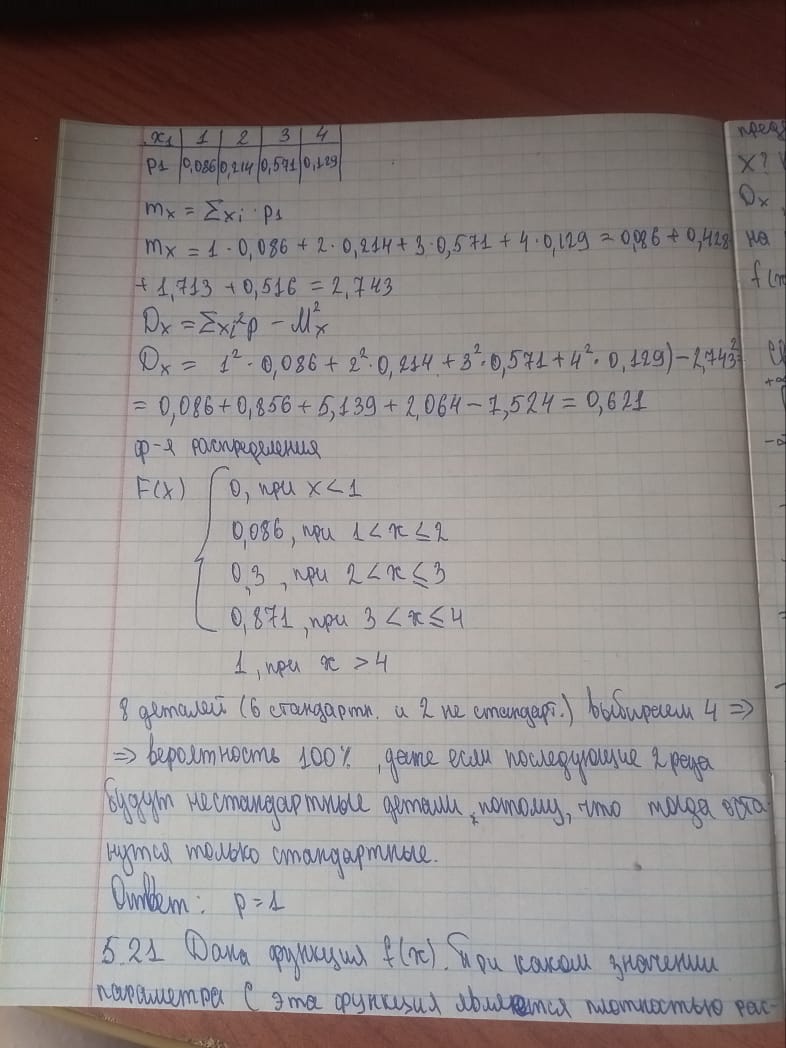 x₁ | 1 | 2 | 3 | 4
p1 | 0,086 | 0,214 | 0,571 | 0,129
mₓ = Σxᵢ · p₁
mₓ = 1 · 0,086 + 2 · 0,214 + 3 · 0,571 + 4 · 0,129 = 0,086 + 0,428
+ 1,713 + 0,516 = 2,743
Dₓ = Σxᵢ²p – M²ₓ
Dₓ = 1² · 0,086 + 2² · 0,214 + 3² · 0,571 + 4² · 0,129) – 2,743²
= 0,086 + 0,856 + 5,139 + 2,064 – 7,524 = 0,621
ф-я распределения
F(x) { 0, при x < 1
0,086, при 1 < x ≤ 2
0,3 , при 2 < x ≤ 3
0,871, при 3 < x ≤ 4
1, при x > 4
8 деталей (6 стандартн. и 2 не стандарт.) выбираем 4 =>
=> вероятность 100% , даже если последующие 2 раза
будут нестандартные детали, потому, что тогда оста
нутся только стандартные.
Ответ: p = 1
5.21 Дана функция f(x). При каком значении
параметра C эта функция является плотностью рас-
пред
x?
Dₓ
на
f(x